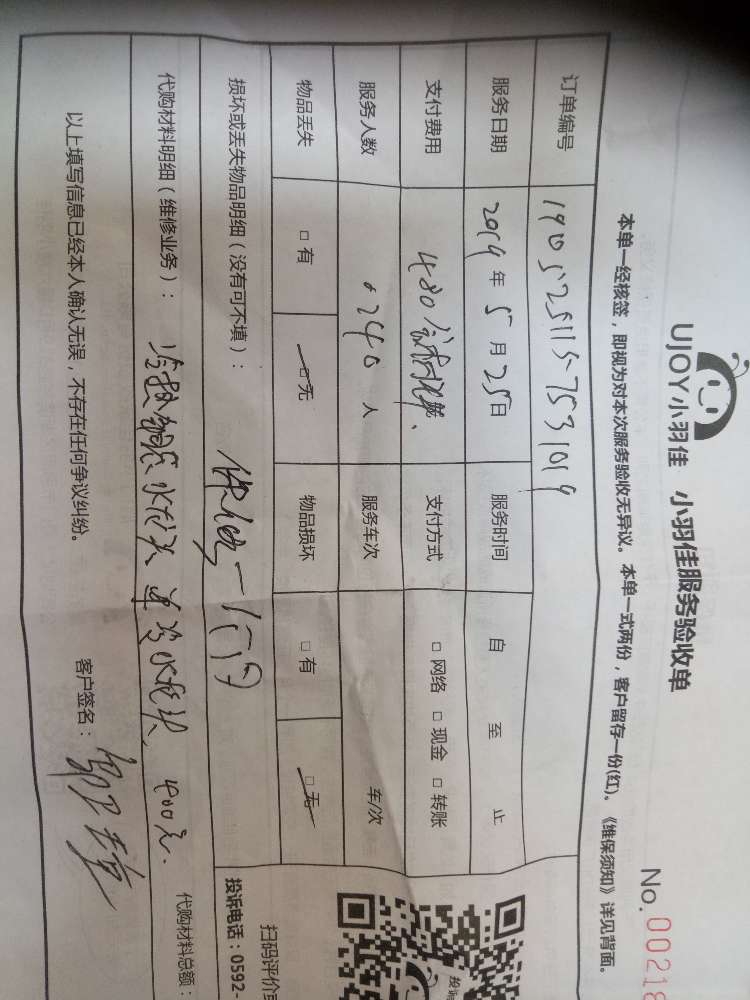 UJOY小羽佳 小羽佳服务验收单
No. 00218
本单一经核签，即视为对本次服务验收无异议。本单一式两份，客户留存一份(红)。《维保须知》详见背面。
订单编号 1905251157531019
服务日期 2019年5月25日 服务时间 自 至 止
支付费用 480 支付方式 □ 网络 □ 现金 □ 转账
服务人数 人 服务车次 车/次
物品丢失 □ 有 □ 无 物品损坏 □ 有 □ 无
损坏或丢失物品明细（没有可不填）：
代购材料明细（维修业务）： 水龙头 单冷水龙头、400元.
代购材料总额：
以上填写信息已经本人确认无误，不存在任何争议纠纷。 客户签名：
投诉
扫码评价或
投诉电话：0592-